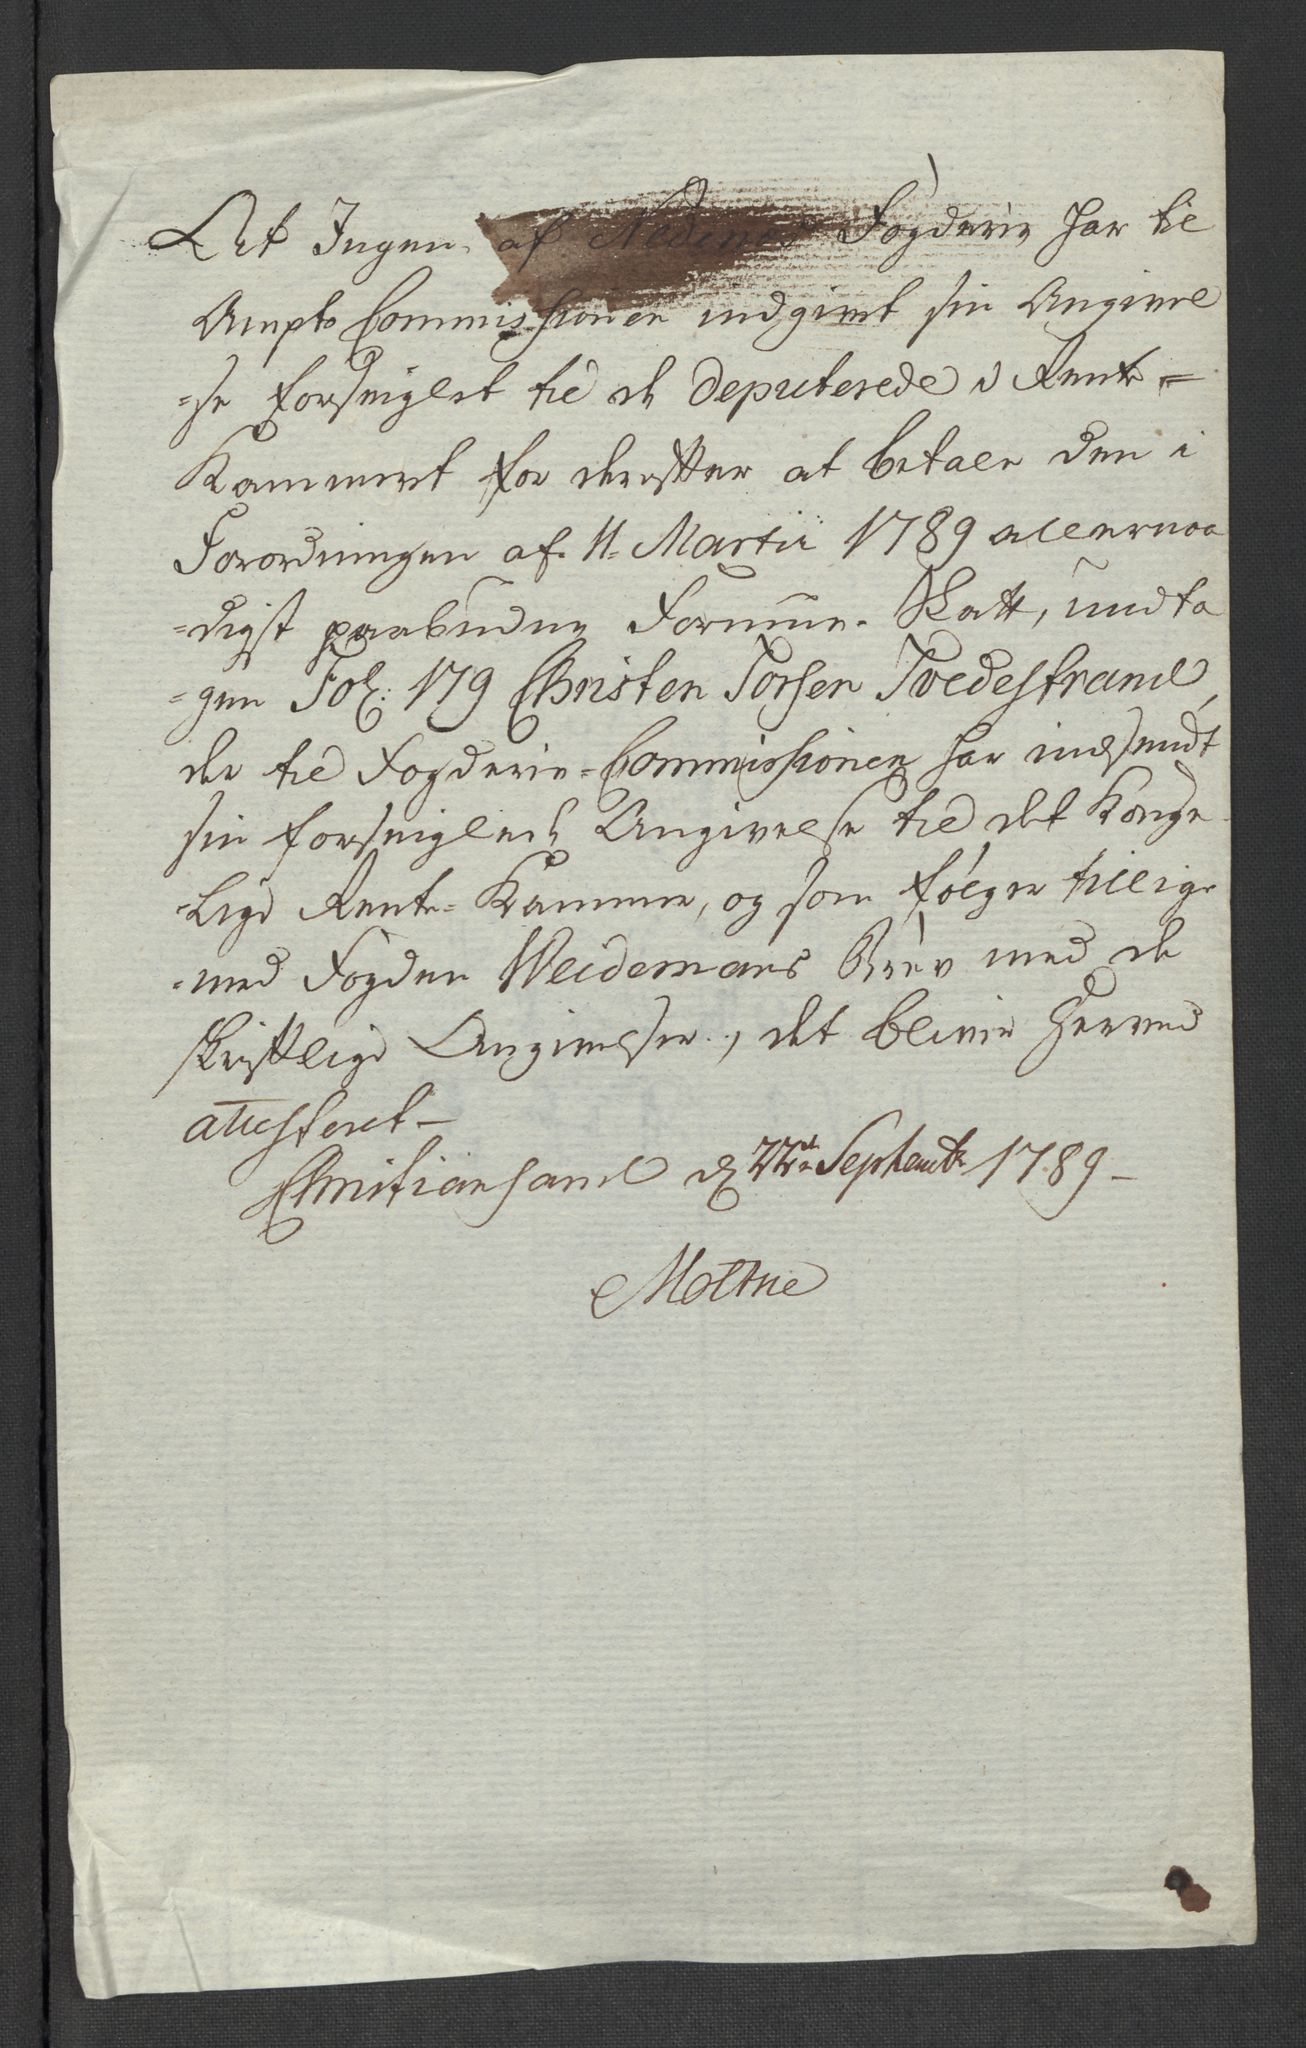 At Ingen af Nedenes Fogderie har til
Ampts Commissionen indgivet sin Angivel
=se forseiglet til de Deputerede i Rente=
Kammeret for derefter at betale den i
Forordningen af 11. Martii 1789 allernaa
=digst paabudne Formue-Skatt, undta
=gen Fol: 179 Christen Torsen Tvedestrand,
der til Fogderie-Commissionen har indsendt
sin forseiglede Angivelse til det Konge
=lige Rente-Kammer, og som følger tillige
=med Fogden Weidemans Brev med de
skriftlige Angivelser, det bliver herved
attesteret–
Christiansand d 22de Septembr 1789–
Moltke